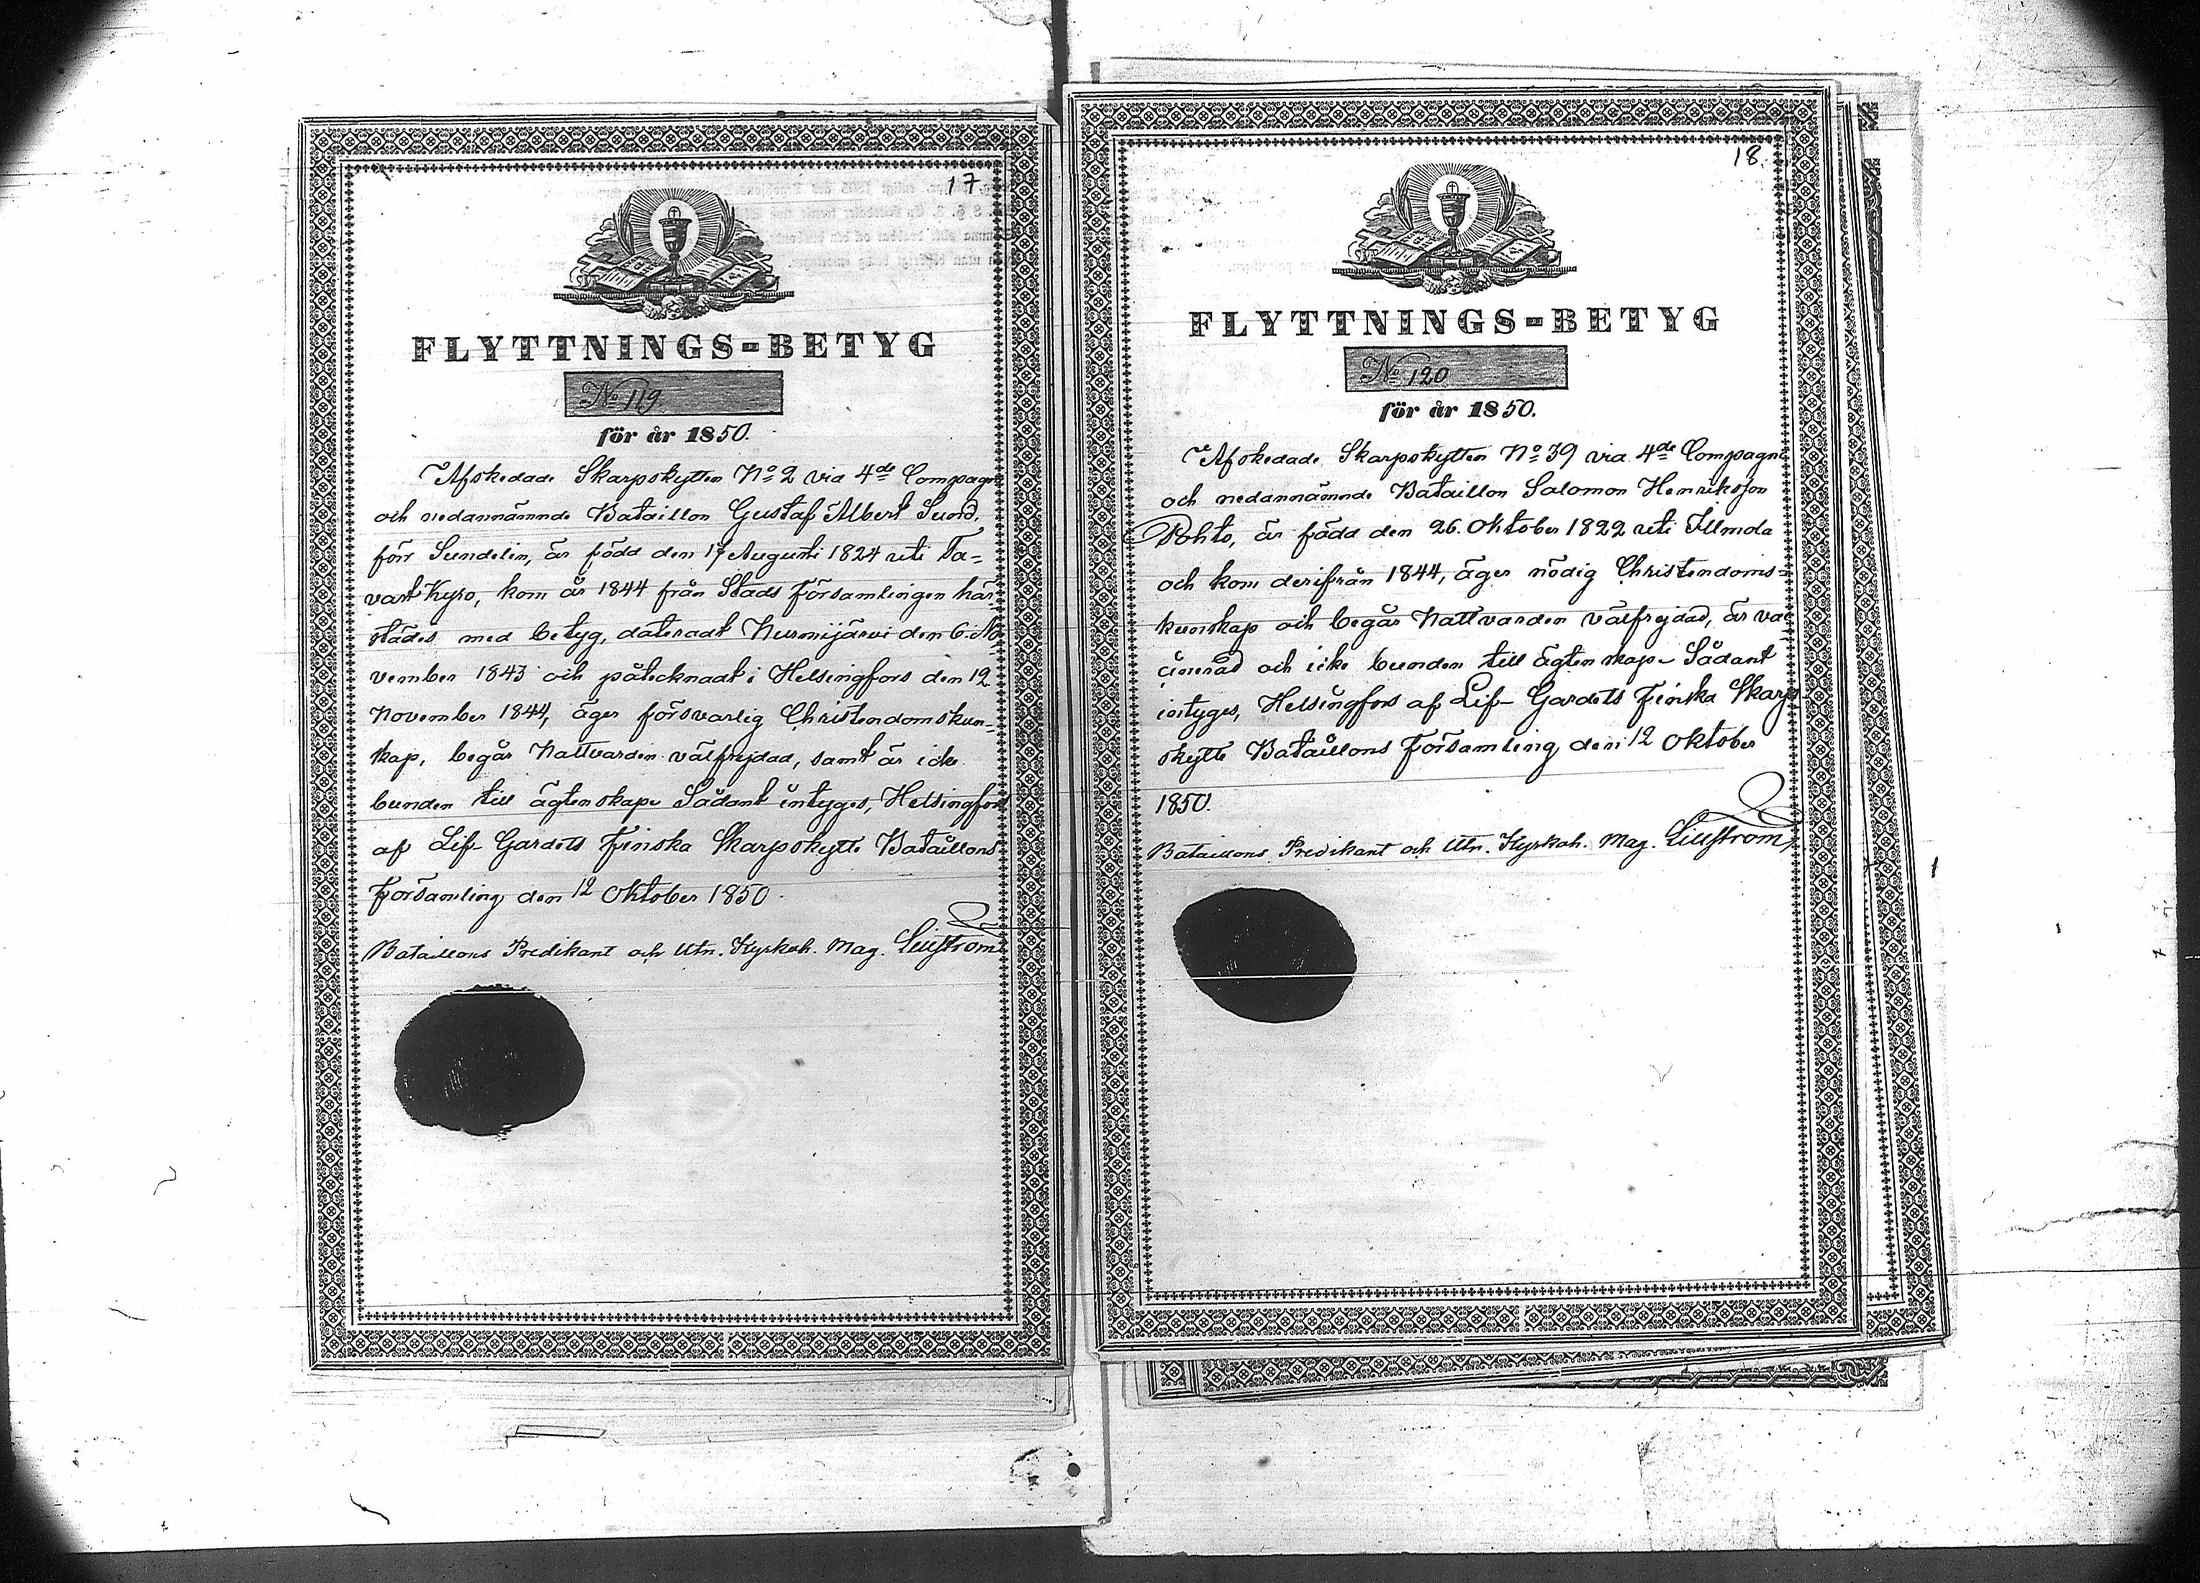 17
FLYTTNINGS-BETYG
No 119
för år 1850.
Afskedade Skarpskytten No 2 vid 4de Compagni
och nedannämnde Bataillon Gustaf Albert Sund,
förr Sundelin, är född den 17 Augusti 1824 uti Ta-
vastKyro, kom år 1844 från Stads Församlingen här-
städes med betyg, dateradt Nurmijärvi den 6 No-
vember 1843 och påtecknadt i Helsingfors den 12
November 1844, äger försvarlig Christendomskun-
skap, begår Nattvarden välfrejdad, samt är icke
bunden till ägtenskap. Sådant intyges, Helsingfors
af Lif-Gardets Finska Skarpskytte Bataillons
Församling den 12 Oktober 1850.
Bataillons Predikant och Utn. Kyrkoh. Mag. Liljström
18.
FLYTTNINGS-BETYG
No 120
för år 1850.
Afskedade Skarpskytten No 39 vid 4de Compagni
och nedannämnde Bataillon Salomon Henriksson
Pohto, är född den 26. Oktober 1822 uti Ilmola
och kom derifrån 1844, äger nödig Christendoms-
kunskap och begår Nattvarden välfrejdad, är vac-
cinerad och icke bunden till ägtenskap. Sådant
intyges, Helsingfors af Lif-Gardets Finska Skarp-
skytte Bataillons Församling, den 12 Oktober
1850.
Bataillons Predikant och Utn. Kyrkoh. Mag. Liljström